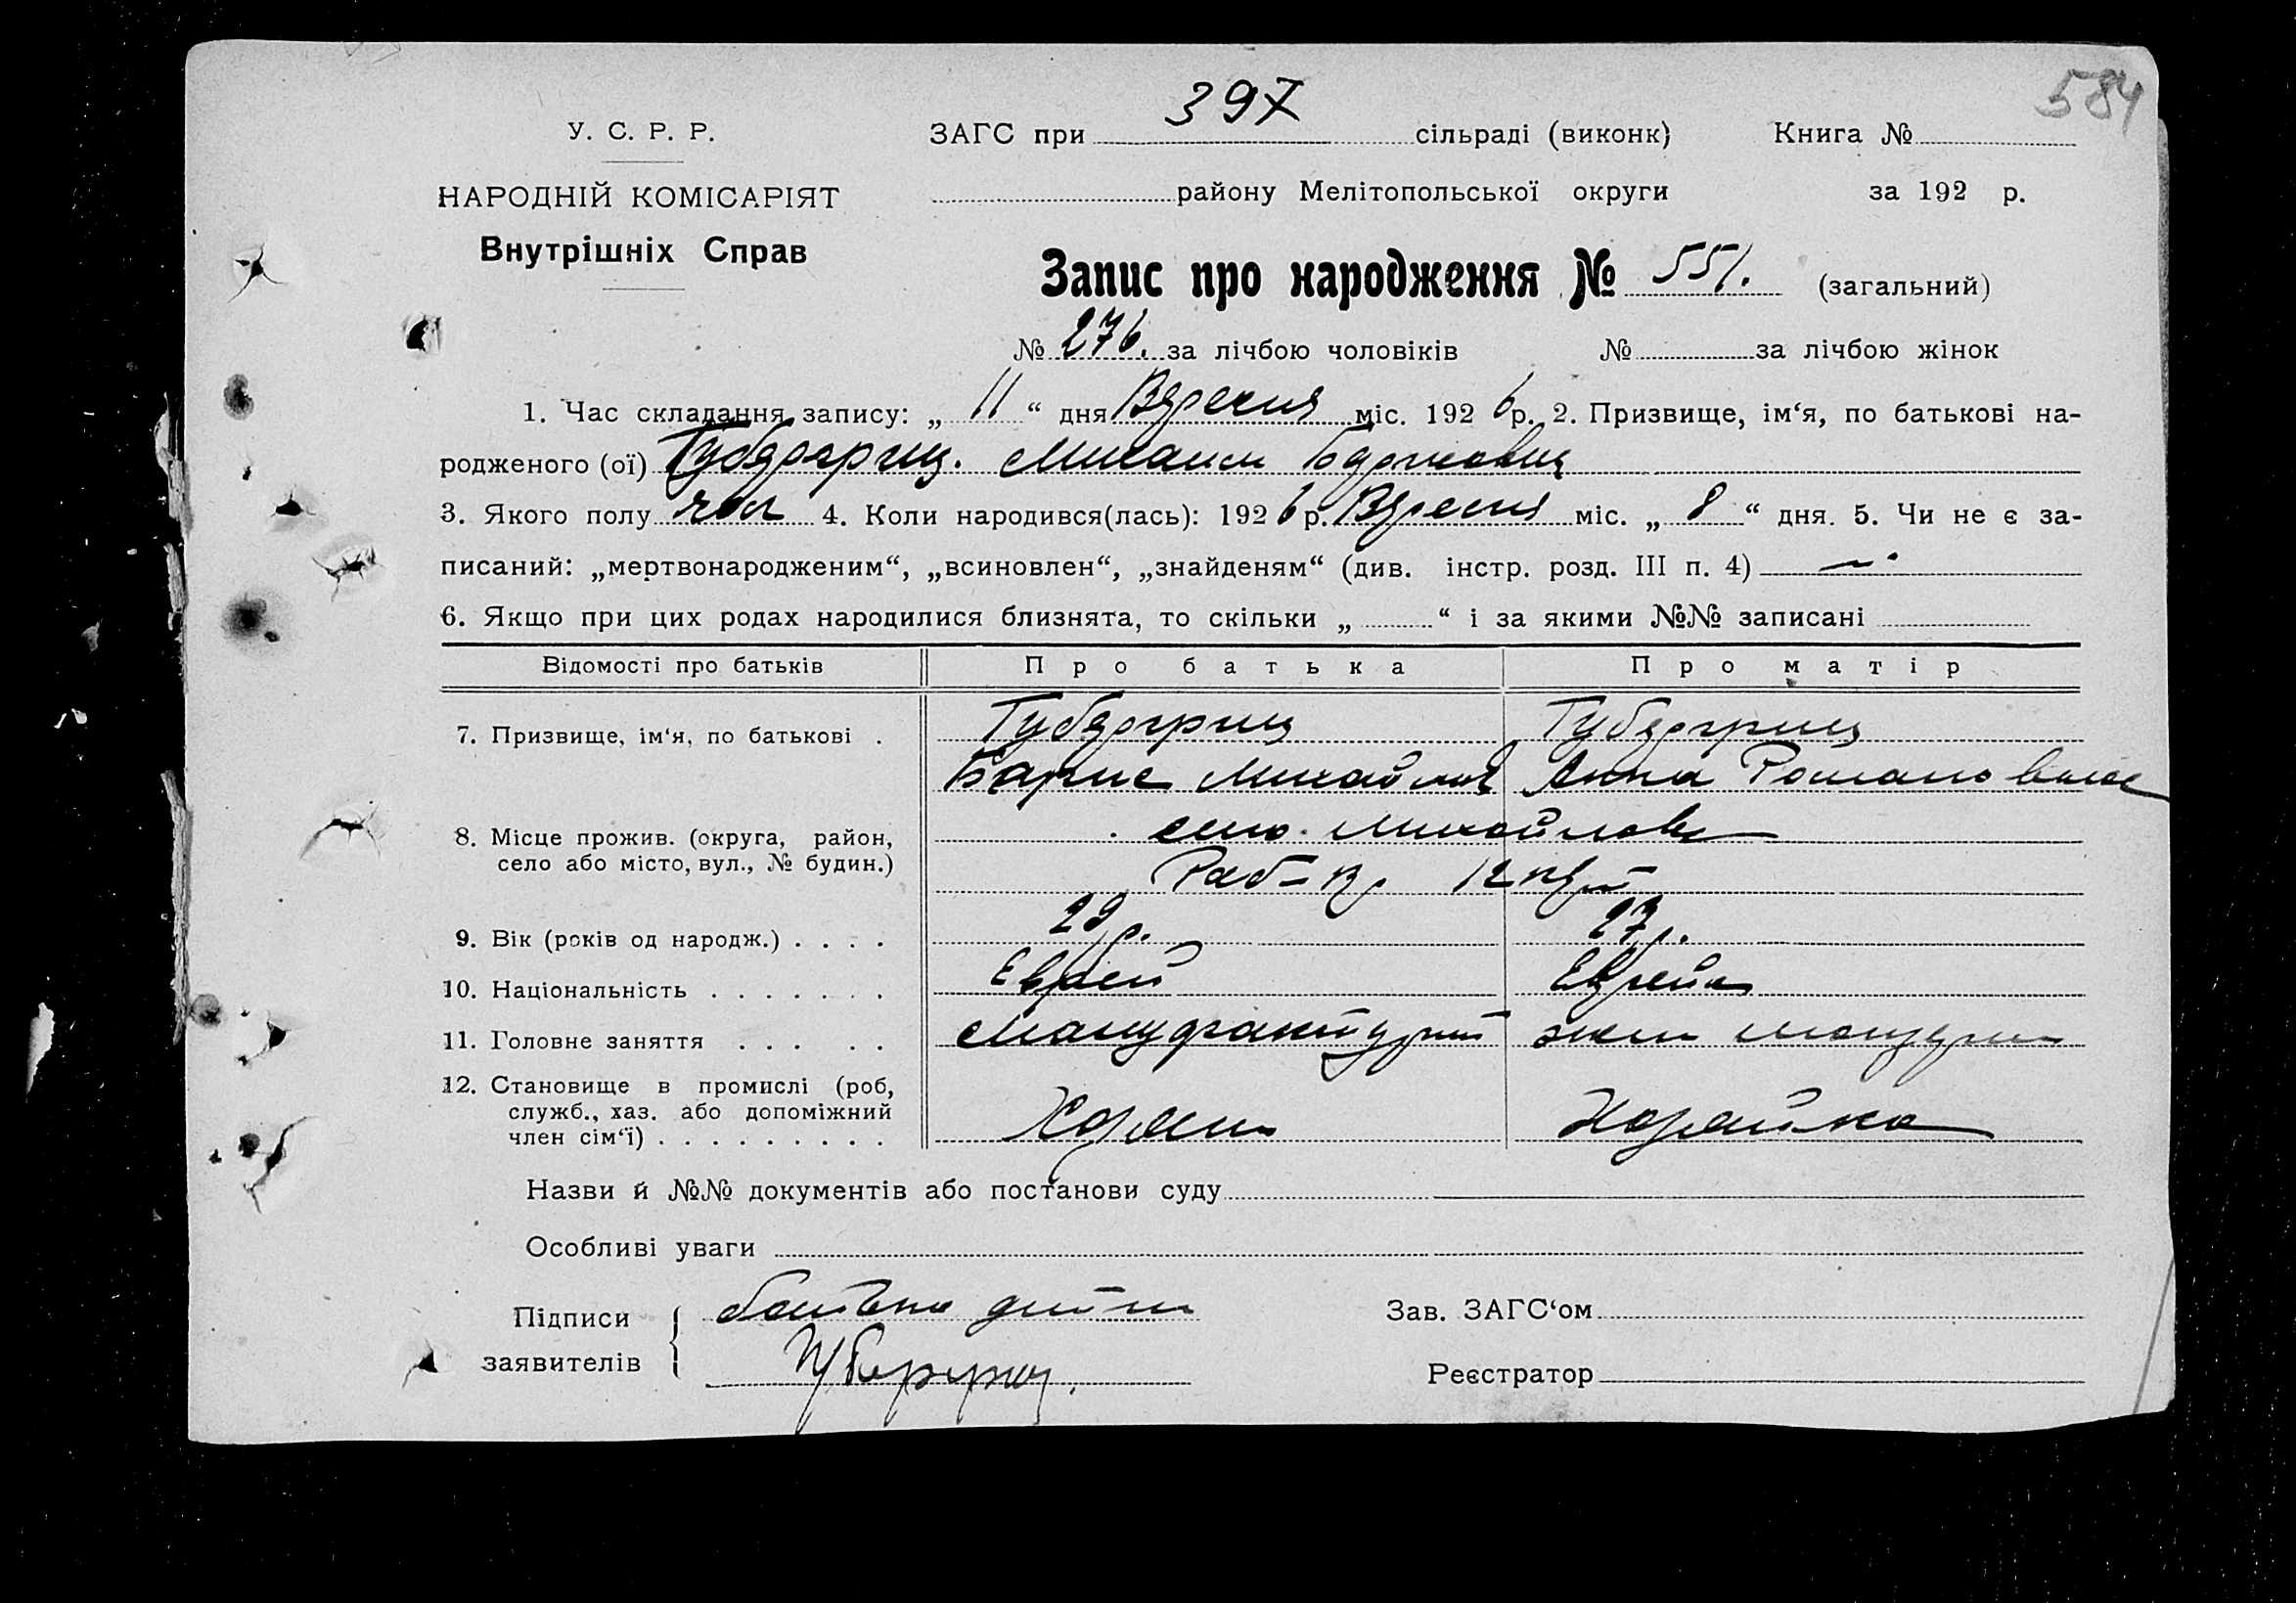 397
584
У. С. Р. Р.
ЗАГС при сільраді (виконк) Книга №
НАРОДНІЙ КОМІСАРІЯТ
району Мелітопольської округи за 192 р.
Внутрішніх Справ
Запис про народження № 551. (загальний)
№ 276. за лічбою чоловіків № за лічбою жінок
1. Час складання запису: „ 11 “ дня Вересня міс. 192 6 р. 2. Призвище, ім‘я, по батькові на-
родженого (ої) Михаил
3. Якого полу чол 4. Коли народився(лась): 192 6 р. Вересня міс. „ 8 “ дня. 5. Чи не є за-
писаний: „мертвонародженим“, „всиновлен“, „знайденям“ (див. інстр. розд. III п. 4) —
6. Якщо при цих родах народилися близнята, то скільки „ “ і за якими №№ записані
Відомості про батьків Про батька Про матір
7. Призвище, ім‘я, по батькові .
Борис Анна Романовна
8. Місце прожив. (округа, район, село Михайловка
село або місто, вул., № будин.)
9. Вік (років од народж.) . . . . 29 р. 27 р.
10. Національність . . . . . . . Еврей Еврейка
11. Головне заняття . . . . .
12. Становище в промислі (роб,
служб., хаз. або допоміжний
член сім‘ї) . . . . . . . . .
Назви й №№ документів або постанови суду
Особливі уваги
Підписи батько
заявителів
Зав. ЗАГС‘ом
Реєстратор